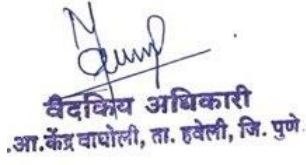 वैदकिय अधिकारी
.आ.केंद्र वाघोली, ता. हवेली, जि. पुणे.